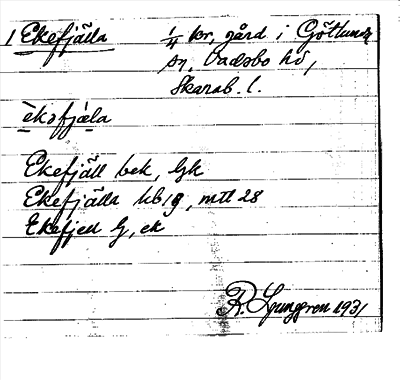 1 Ekefjälla 1/4 kr, gård i Götlunda
sn, Vadsbo hd,
Skarab. l.
èkəfjǻla
Ekefjäll bek, Gk
Ekefjälla kb 19, mtl 28
Ekefjell G, ek
R. Ljunggren 1931